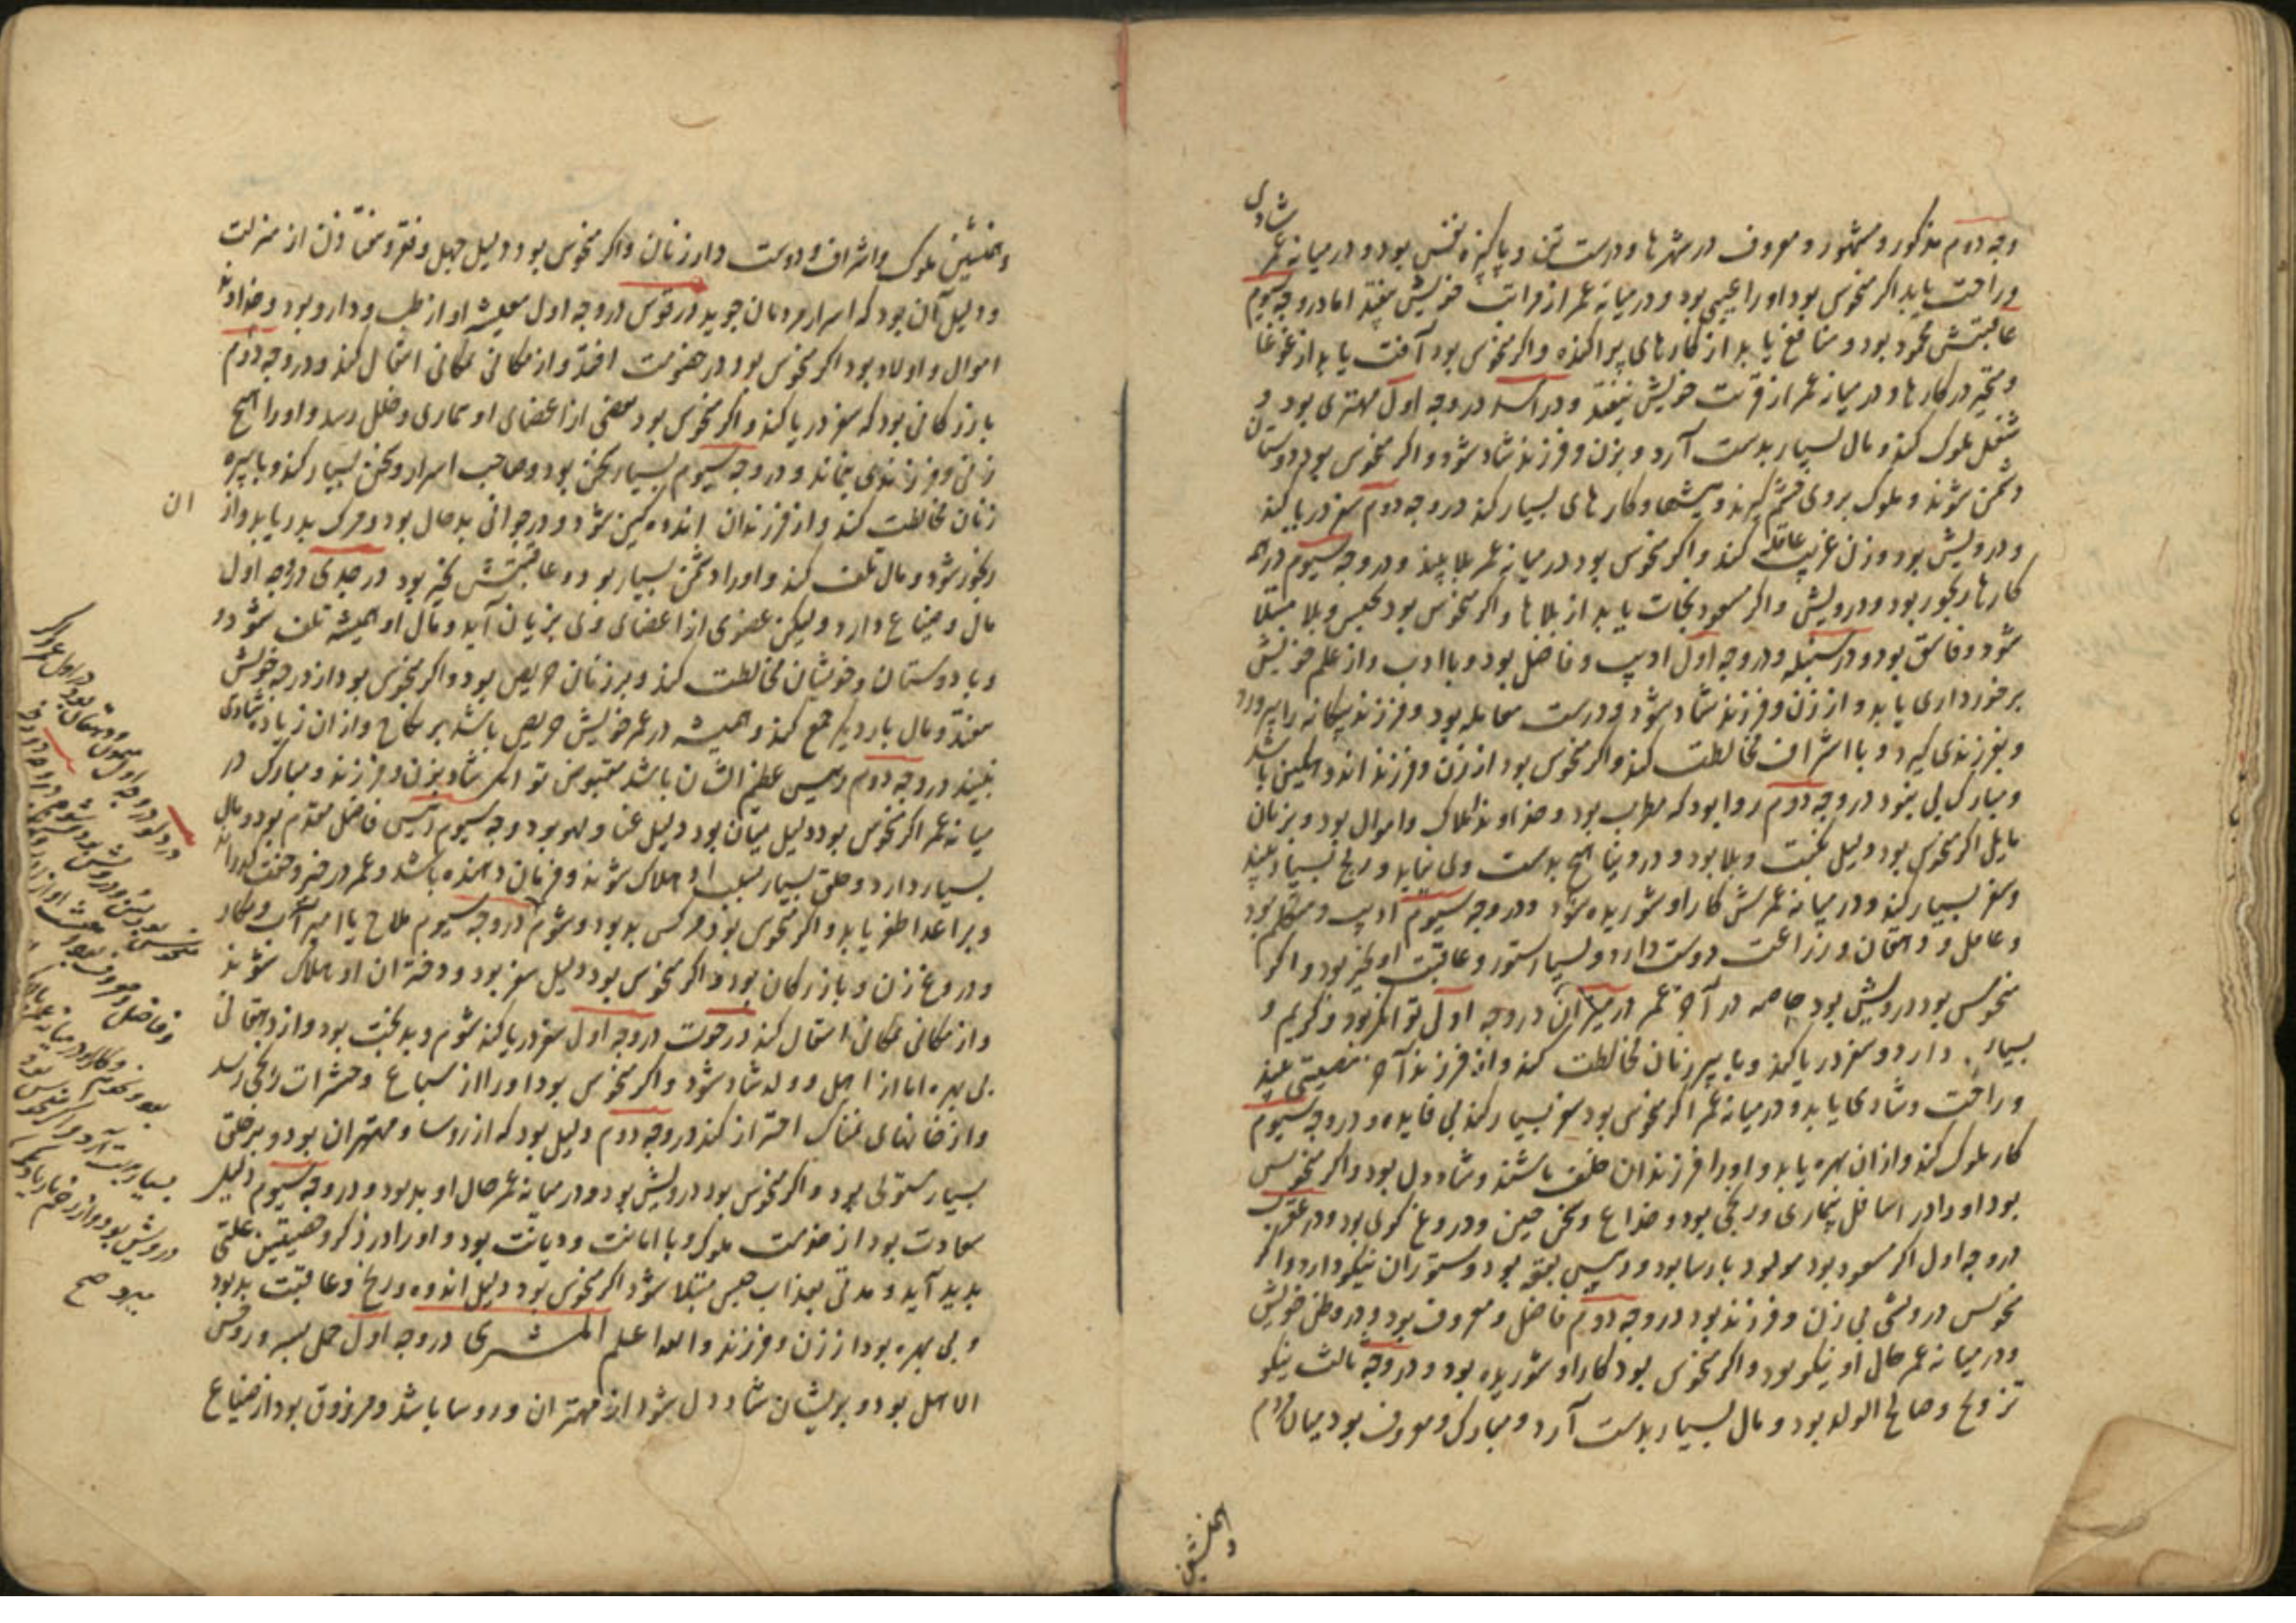 شادی
وجه دوم مذکور و مشهور و معروف در شهرها و درست تن و پاکیزه نفس بود و در میانه عمر
و راحت یابد اگر منحوس بود او را عیبی بود و در میانه عمر از مراتب خویش بیفتد اما در وجه سیوم
عاقبتش محمود بود و منافع یابد از کارهای پراکنده و اگر منحوس بود آفت یابد از غوغا
و متحیر در کارها و در میانه عمر از قربت خویش بیفتد و در اسد در وجه اول مهتری بود و
شغل ملوک کند و مال بسیار بدست آرد و بزن و فرزند شاد شود و اگر منحوس بود دوستان
دشمن شوند و ملوک بر وی خشم گیرند و پیشها و کارهای بسیار کند در وجه دوم سفر دریا کند
و درویش بود و زن غریب عاقله کند و اگر منحوس بود در میانه عمر بلا بیند و در وجه سیوم در همه
کارها رنجور بود و درویش و اگر مسعود نجات یابد از بلاها و اگر منحوس بود بحبس و بلا مبتلا
شود و فاسق بود و در سنبله در وجه اول ادیب و فاضل بود و با ادب و از علم خویش
برخورداری یابد و از زن و فرزند شاد شود و درست معامله بود و فرزند بیگانه را بپرورد
و بفرزندی گیرد و با اشراف مخالطت کند و اگر منحوس بود از زن و فرزند اندوهگین باشد
و مبارک پی بود در وجه دوم روا بود که مطرب بود و خداوند املاک و اموال بود و بزنان
مایل اگر منحوس بود دلیل نکبت و بلا بود و در دنیا هیچ بدست وی نیاید و رنج بسیار بیند
و سفر بسیار کند و در میانه عمرش کار او شوریده شود و در وجه سیوم ادیب و متکلم بود
و عامل و دهقان و زراعت دوست دارد و بسیار ستور و عاقبت او بخیر بود و اگر
منحوس بود درویش بود خاصه در آخر عمر در میزان در وجه اول توانگر بود و کریم و
بسیار دارد و سفر دریا کند و با پیر زنان مخالطت کند و از فرزند آخر مصیبتی بیند
و راحت و شادی یابد و در میانه عمر اگر منحوس بود سفر بسیار کند بی فایده و در وجه سیوم
کار ملوک کند و از آن بهره یابد و او را فرزندان خلف باشند و شاد دل بود و اگر منحوس
بود او را در اسافل بیماری و رنجی بود و خداع و سخن چین و دروغ گوی بود و در عقرب
در وجه اول اگر مسعود بود مولود پارسا بود و رییس بقعه بود و ستوران نیکو دارد و اگر
منحوس درویشی بی زن و فرزند بود در وجه دوم فاضل و معروف بود و در وطن خویش
و در میانه عمر حال او نیکو بود و اگر منحوس بود کار او شوریده بود و در وجه ثالث نیکو
تزویج و صالح الولد بود و مال بسیار بدست آرد و مبارک و معروف بود میان مردم
و همنشین
و همنشین ملوک و اشراف و دوست دار زنان و اگر منحوس بود دلیل جهل و فقر و افتادن از منزلت
و دلیل آن بود که اسرار مردمان جوید در قوس در وجه اول معیشه او از طب و دارو بود و خداوند
اموال و اولاد بود اگر منحوس بود در خصومت افتد و از مکانی بمکانی انتقال کند و در وجه دوم
بازرگانی بود که سفر دریا کند و اگر منحوس بود بعضی از اعضای او بیماری و خلل رسد و او را هیچ
زنی و فرزندی نماند و در وجه سیوم بسیار سخن بود و صاحب اسرار و سخن بسیار کند و با پیره
زنان مخالطت کند و از فرزندان اندوهگین شود و در جوانی بدحال بود و مرگ پدر یابد و از
ان
رنجور شود و مال تلف کند و او را دشمن بسیار بود و عاقبتش بخیر بود در جدی در وجه اول
مال و ضیاع دارد و لیکن عضوی از اعضای وی بزیان آید و مال او همیشه تلف شود
و با دوستان و خویشان مخالطت کند و بر زنان حریص بود و اگر منحوس بود از درجه خویش
بیفتد و مال بار دیگر جمع کند و همیشه در عمر خویش حریص باشد بر نکاح و از آن زیاده شادی
نبیند در وجه دوم رییس عظیم الشان باشد مقبوض توانگر شاد بزن و فرزند و مبارک در
میانه عمر اگر منحوس بود دلیل میان بود دلیل غنا و لهو بود وجه سیوم رییس فاضل مقدم بود و مال
بسیار دارد و خلق بسیار بسبب او هلاک شوند و فرمان دهنده باشد و عمر در خیر و خفت گذراند
و بر اعدا ظفر یابد و اگر منحوس بود مرکس بد بود و شوم در وجه سیوم ملاح یا امیر آب و مکار
و دروغ زن و بازرگان بود و اگر منحوس بود دلیل سفر بود و دختران او هلاک شوند
و از مکانی بمکانی انتقال کند در حوت در وجه اول سفر دریا کند شوم و بدبخت بود و از دهقانی
بی بهره اما از اهل و ولد شاد شود و اگر منحوس بود او را از سباع و حشرات رنجی رسد
و از خانهای نمناک احتراز کند در وجه دوم دلیل بود که از روسا و مهتران بود و بر خلق
بسیار مستولی بود و اگر منحوس بود درویش بود و در میانه عمر حال او بد بود و در وجه سیوم دلیل
سعادت بود از خدمت ملوک و با امانت و دیانت بود و او را در ذکر و خصیتین علتی
پدید آید و مدتی بعذاب حبس مبتلا شود اگر منحوس بود دلیل اندوه و رنج و عاقبت بد بود
و بی بهره بود از زن و فرزند والله اعلم المشتری در وجه اول حمل بسیه و روس
الاهل بود و بویشان شاد دل شود از مهتران و روسا باشد و مرزوق بود از ضیاع
در دلو در وجه اول
منحوس بود
و فاضل و معروف بود
بود و
بسیار بدست آرد و اگر منحوس بود
درویش بود و از
میرد صح